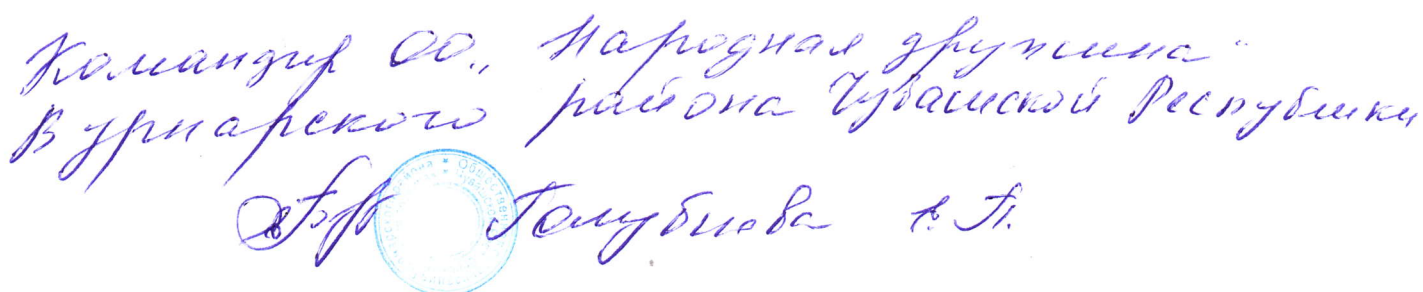 Командир ОО „Народная дружина"
Вурнарского района Чувашской Республики
Голубнева А. П.